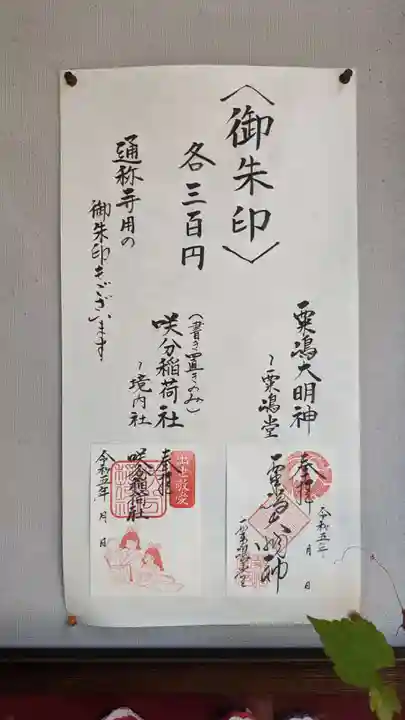 〈御朱印〉
各三百円
通称寺用の
御朱印もございます
粟嶋大明神
〜粟嶋堂
(書き置きのみ)
咲分稲荷社
〜境内社
奉拝
令和五年 月 日
粟嶋大明神
粟嶋堂
奉拝
出世敬愛
咲分稲荷社
令和五年 月 日